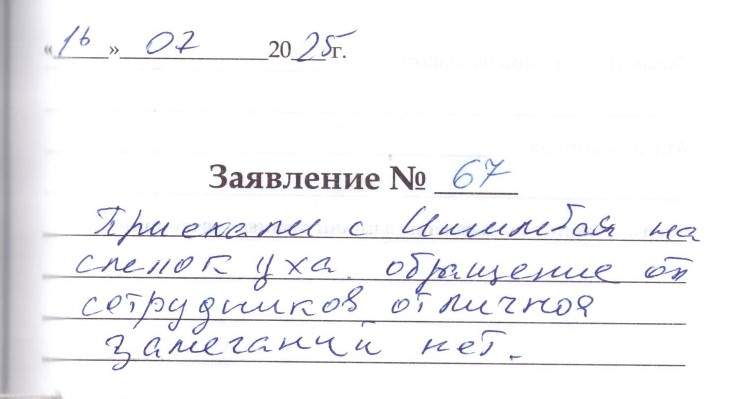 «16» 07 2025г.
Заявление № 67
Приехали с Ишимбая на
слепок уха. обращение от
сотрудников отличноя
замечаний нет.